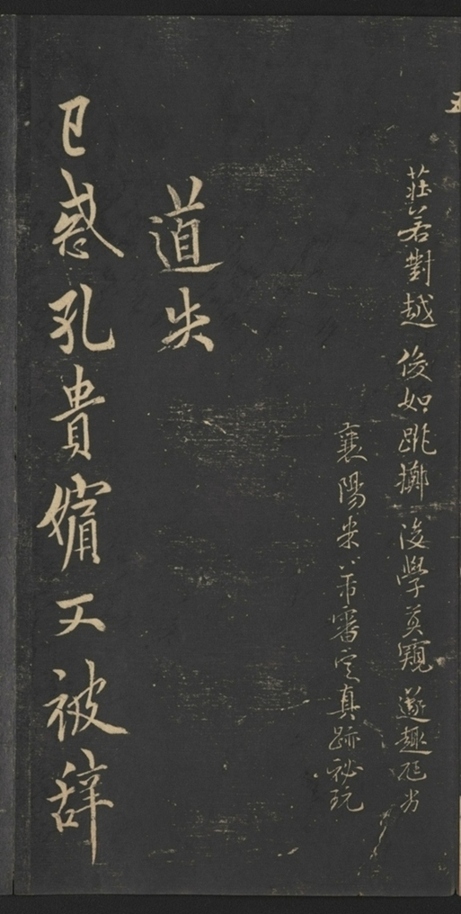 莊若對越 俊如跳擲 後學莫窺 遂趣尫劣
襄陽米芾審定真跡秘玩
道失
已惑孔貴嬪又被辭